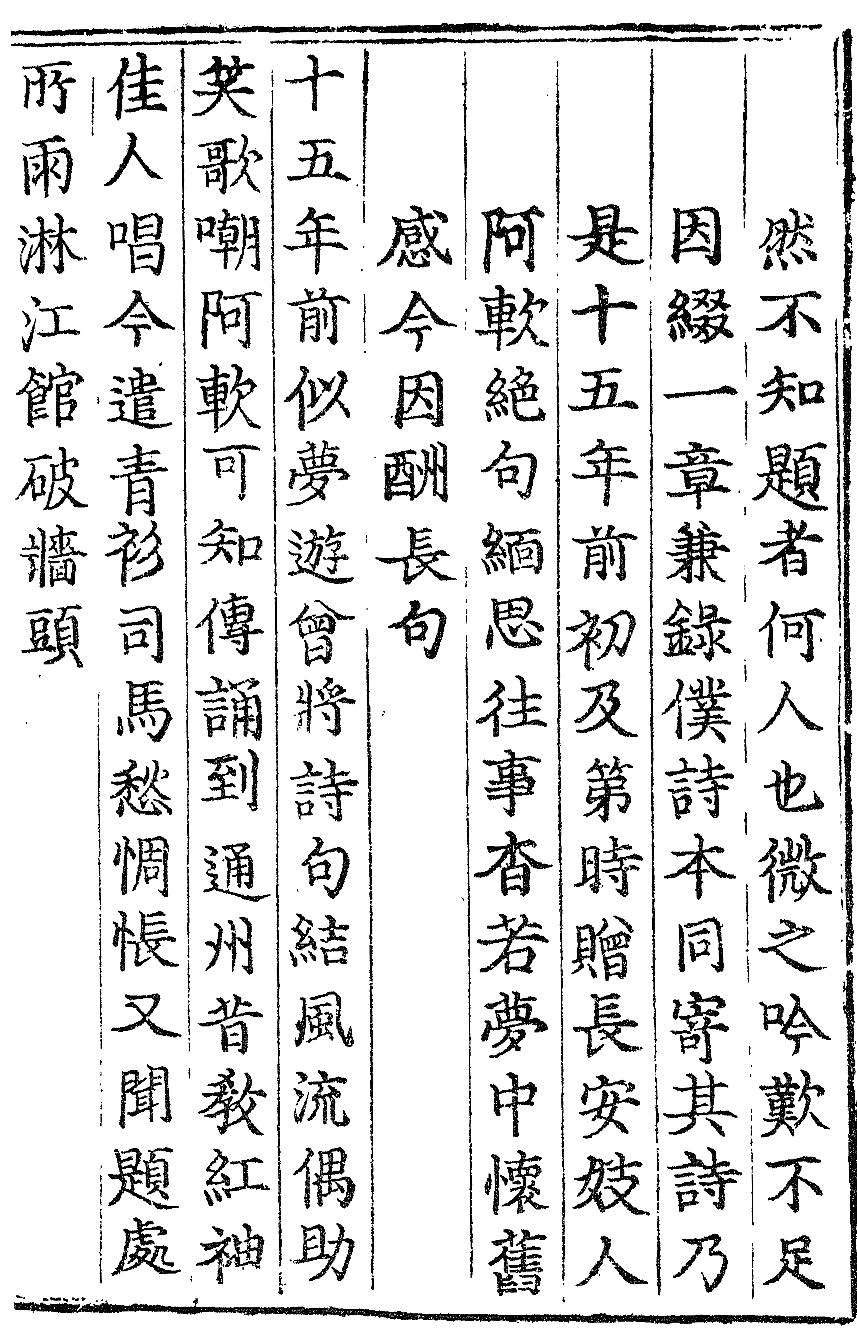 然不知題者何人也微之吟歎不足
因綴一章兼錄僕詩本同寄其詩乃
是十五年前初及第時贈長安妓人
阿軟絕句緬思往事杳若夢中懷舊
感今因酬長句
十五年前似夢遊曾將詩句結風流偶助
笑歌嘲阿軟可知傳誦到通州昔教紅袖
佳人唱今遣青衫司馬愁惆悵又聞題處
所雨淋江館破牆頭